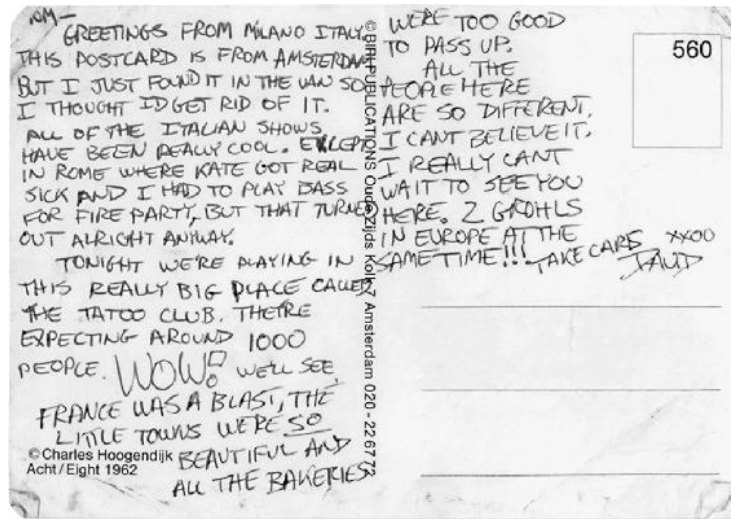 MOM—
GREETINGS FROM MILANO ITALY.
THIS POSTCARD IS FROM AMSTERDAM
BUT I JUST FOUND IT IN THE VAN SO
I THOUGHT ID GET RID OF IT.
ALL OF THE ITALIAN SHOWS
HAVE BEEN REALLY COOL. EXCEPT
IN ROME WHERE KATE GOT REAL
SICK AND I HAD TO PLAY BASS
FOR FIRE PARTY, BUT THAT TURNED
OUT ALRIGHT ANYWAY.
TONIGHT WE'RE PLAYING IN
THIS REALLY BIG PLACE CALLED
THE TATOO CLUB. THEIRE
EXPECTING AROUND 1000
PEOPLE. WOW! WE'LL SEE.
FRANCE WAS A BLAST, THE
LITTLE TOWNS WERE SO
BEAUTIFUL AND
ALL THE BAKERIES
©Charles Hoogendijk
Acht/Eight 1962
© BIRH PUBLICATIONS Oude Zijds Kolk 7 Amsterdam 020-226772
WERE TOO GOOD
TO PASS UP.
ALL THE
PEOPLE HERE
ARE SO DIFFERENT.
I CANT BELIEVE IT.
I REALLY CANT
WAIT TO SEE YOU
HERE. 2 GROHLS
IN EUROPE AT THE
SAME TIME!!! TAKE CARE XXOO
DAVID
560